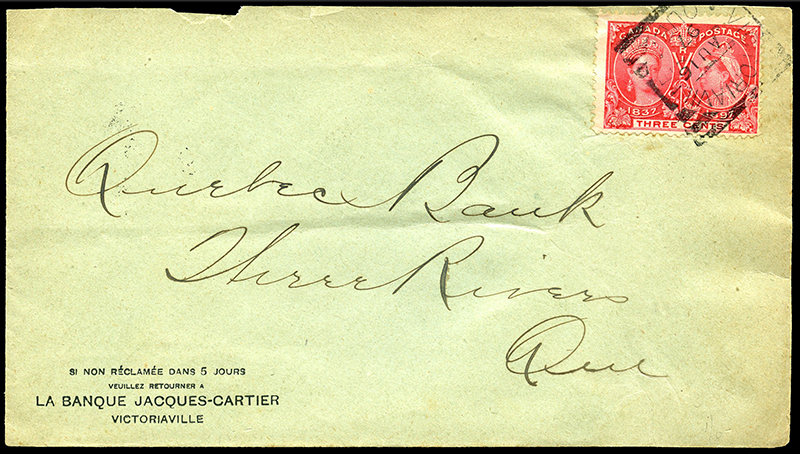 CANADA POSTAGE
1837 1897
THREE CENTS
Quebec Bank
Three Rivers
Que
SI NON RÉCLAMÉE DANS 5 JOURS
VEUILLEZ RETOURNER A
LA BANQUE JACQUES-CARTIER
VICTORIAVILLE